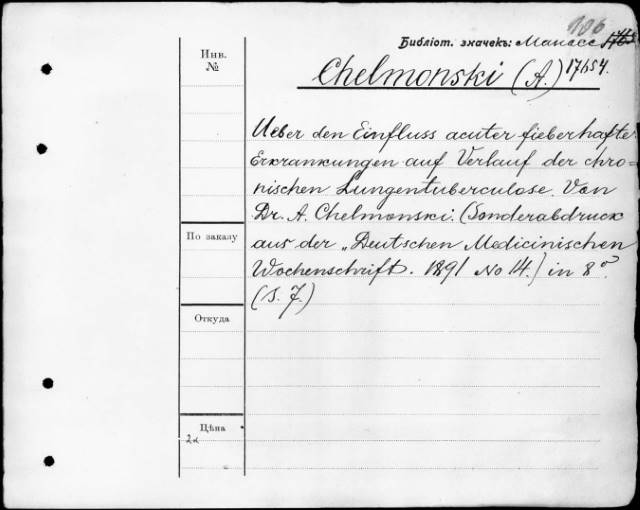 106
Библіот. значекъ: Манасс
17654.
Инв.
№
Chelmonski (A.)
Ueber den Einfluss acuter fieberhafter
Erkrankungen auf Verlauf der chro=
nischen Lungentuberculose. Von
Dr. A. Chelmonski. (Sonderabdruck
По заказу
aus der „Deutschen Medicinischen
Wochenschrift. 1891 No 14.) in 8º.
(S. 7.)
Откуда
Цѣна